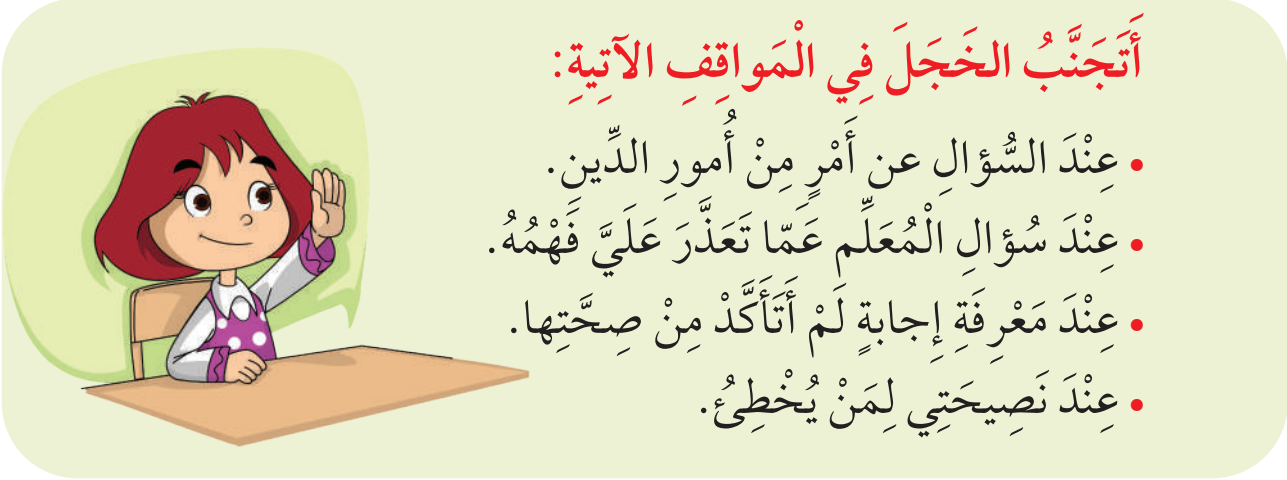 أَتَجَنَّبُ الخَجَلَ فِي الْمَواقِفِ الآتِيةِ:
• عِنْدَ السُّؤالِ عن أَمْرٍ مِنْ أُمورِ الدِّينِ.
• عِنْدَ سُؤالِ الْمُعَلِّم عَمّا تَعَذَّرَ عَلَيَّ فَهْمُهُ.
• عِنْدَ مَعْرِفَةِ إِجابةٍ لَمْ أَتَأَكَّدْ مِنْ صِحَّتِها.
• عِنْدَ نَصِيحَتِي لِمَنْ يُخْطِئُ.